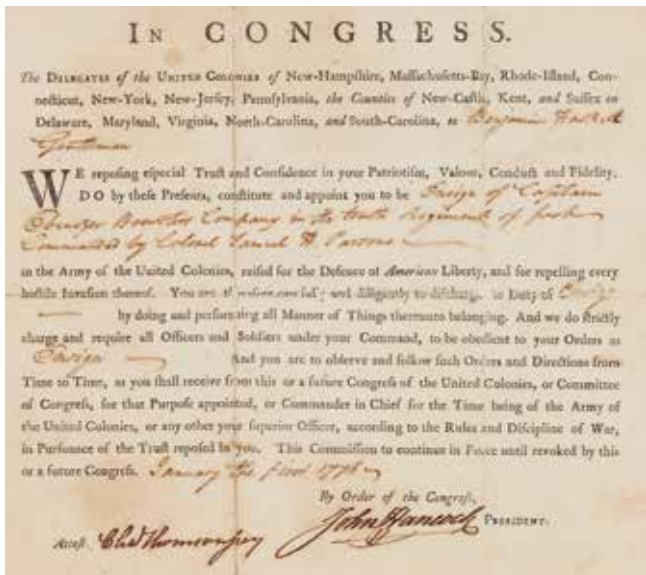 IN CONGRESS.
The DELEGATES of the UNITED COLONIES of New-Hampshire, Massachusetts-Bay, Rhode-Island, Con-
necticut, New-York, New-Jersey, Pennsylvania, the Counties of New-Castle, Kent, and Sussex on
Delaware, Maryland, Virginia, North-Carolina, and South-Carolina, to Benjamin
Gentleman
WE reposing especial Trust and Confidence in your Patriotism, Valour, Conduct and Fidelity,
DO by these Presents, constitute and appoint you to be Ensign of Captain
Ebenezer Company in the tenth Regiment of foot
Commanded by Colonel Samuel H Parsons
in the Army of the United Colonies, raised for the Defence of American Liberty, and for repelling every
hostile Invasion thereof. You are therefore carefully and diligently to discharge the Duty of Ensign
by doing and performing all Manner of Things thereunto belonging. And we do strictly
charge and require all Officers and Soldiers under your Command, to be obedient to your Orders as
Ensign And you are to observe and follow such Orders and Directions from
Time to Time, as you shall receive from this or a future Congress of the United Colonies, or Committee
of Congress, for that Purpose appointed, or Commander in Chief for the Time being of the Army of
the United Colonies, or any other your superior Officer, according to the Rules and Discipline of War,
in Pursuance of the Trust reposed in you. This Commission to continue in Force until revoked by this
or a future Congress. January the first 1776
By Order of the Congress,
John Hancock PRESIDENT.
Attest. Chas Thomson secy